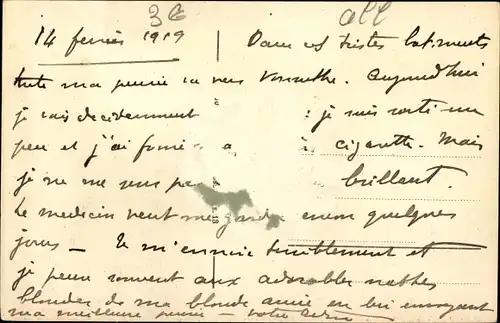 3€
all
14 février 1919
Dans ces tristes batiments
toute ma pensée va vers Vonnethe. Aujourd'hui
je vais décidemment : je suis sorti un
peu et j'ai fumé cigarette. Mais
je ne me sens pas brillant.
Le medecin veut me garder encore quelques
jours — Je m'ennuie terriblement et
je pense souvent aux adorables nattes
blondes de ma blonde amie en lui envoyant
ma meilleure pensée — votre